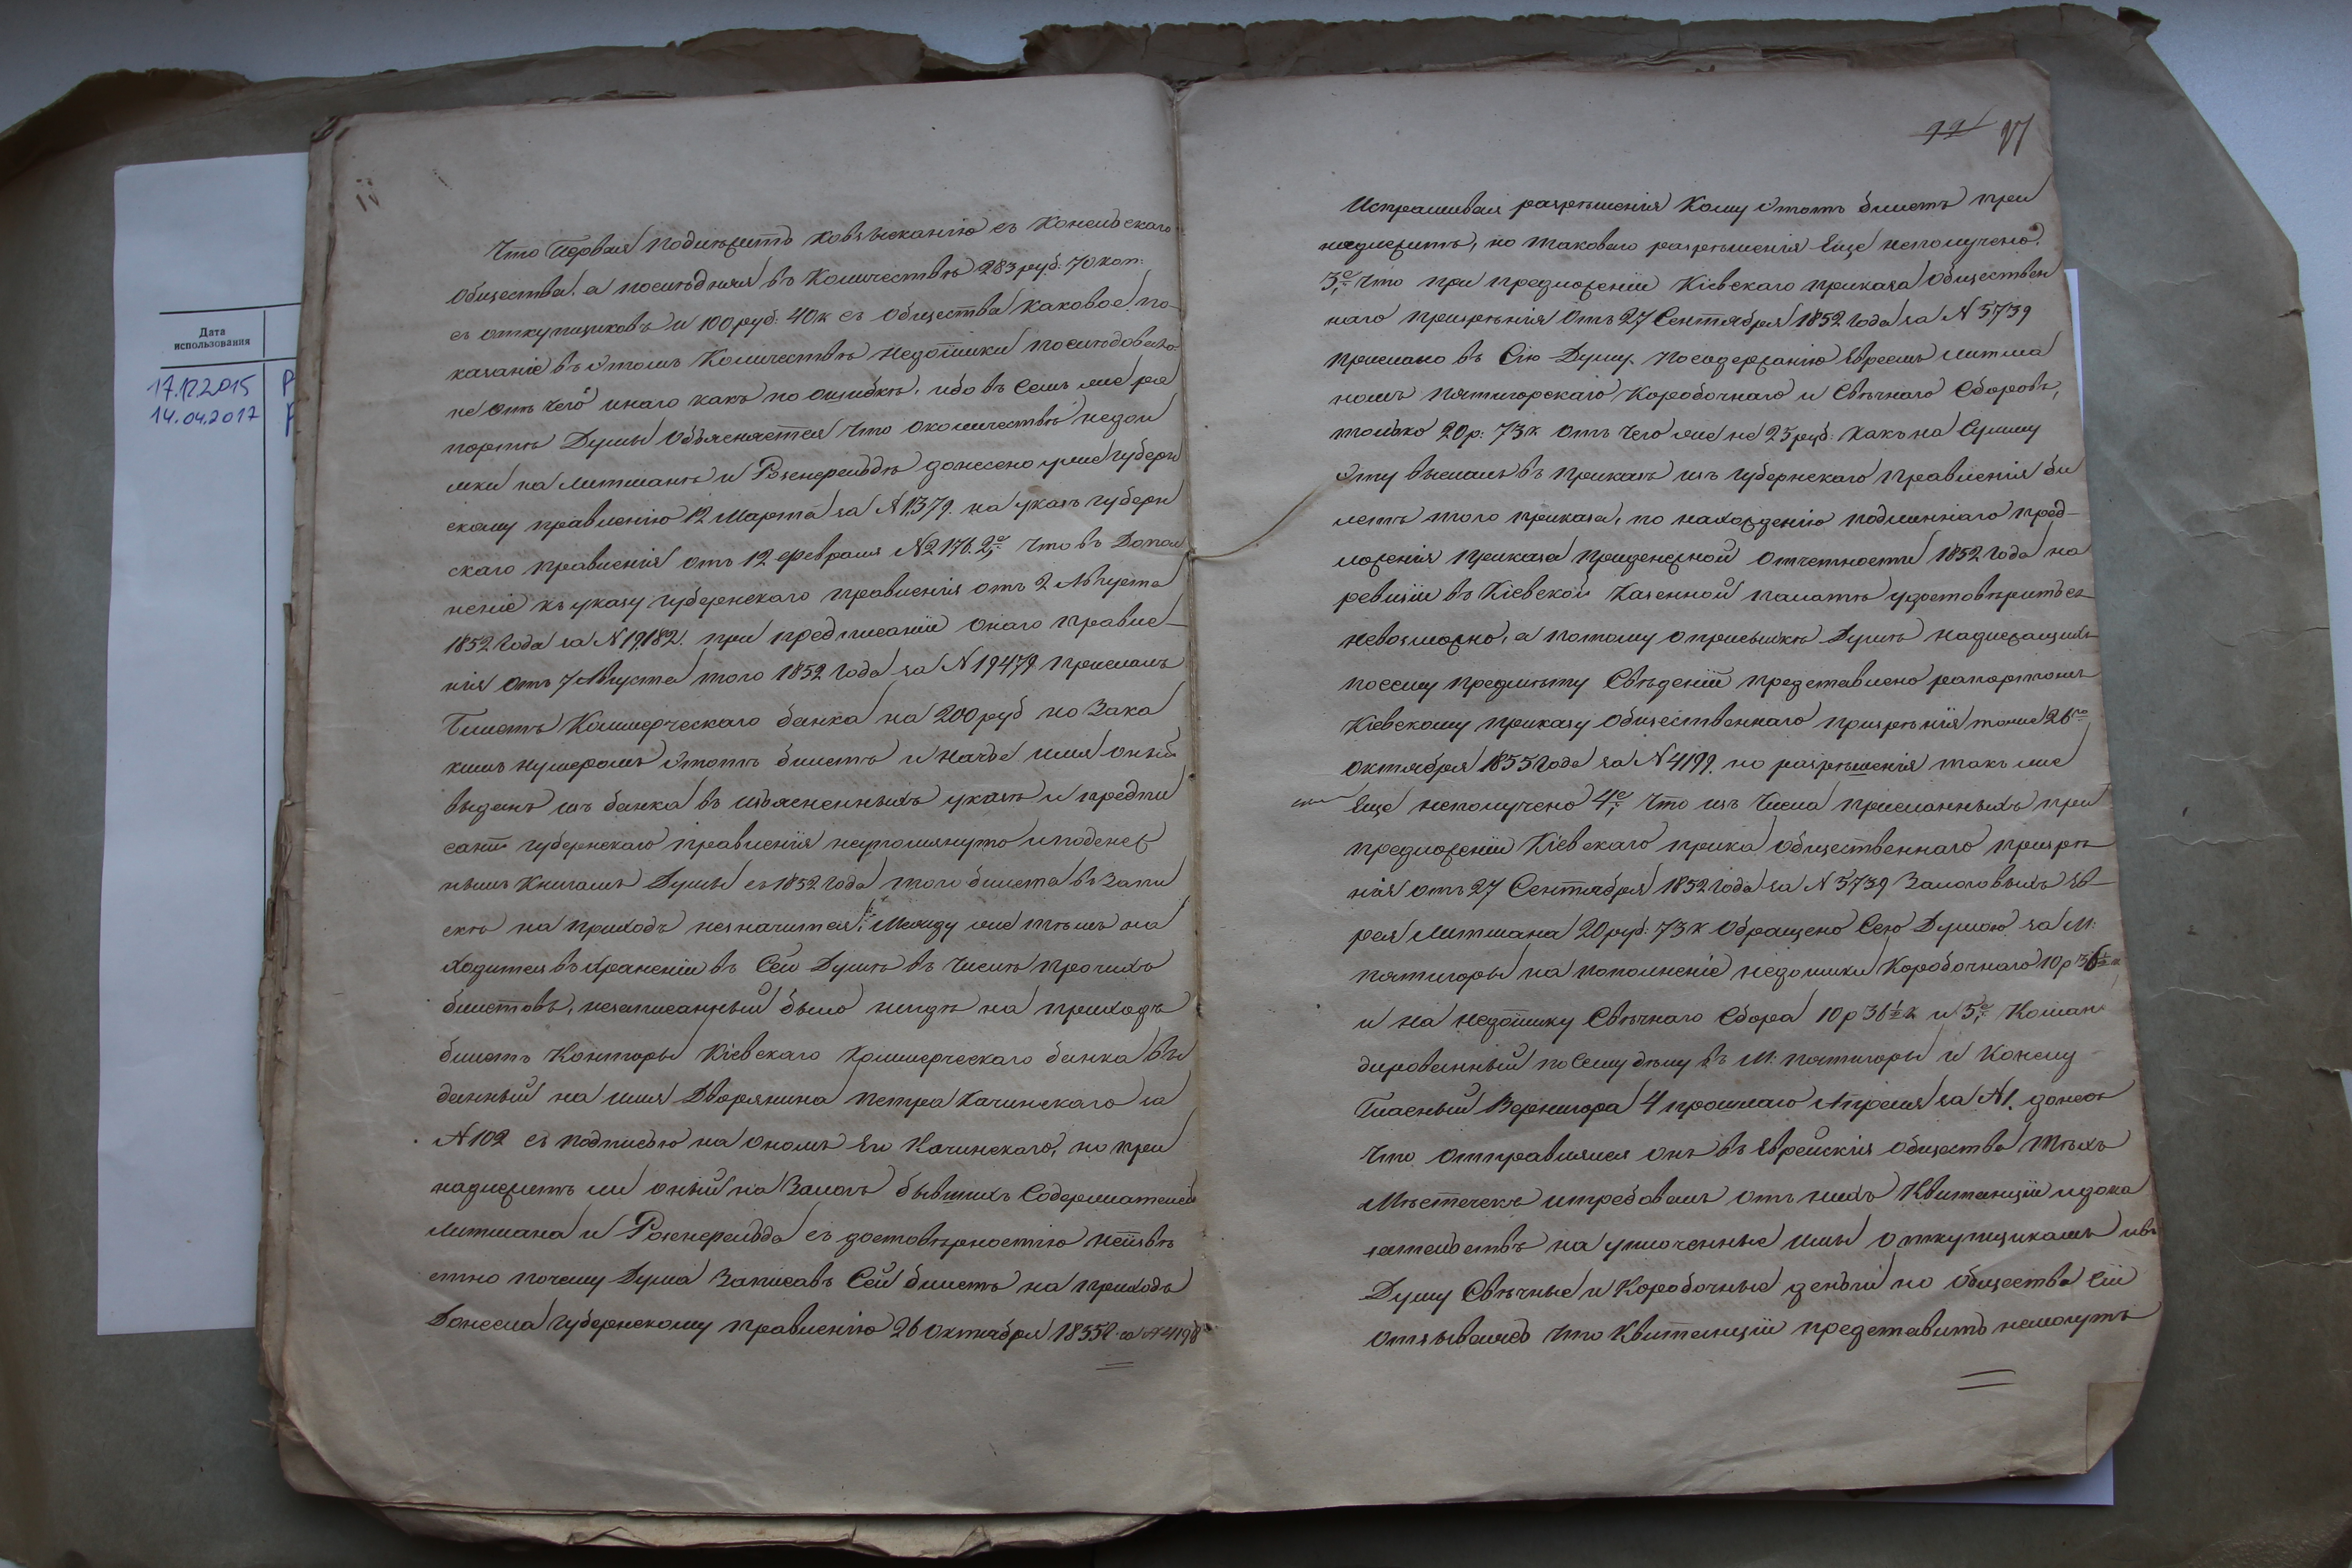 Дата
использования
17.12.2015 Р
14.04.2017
Что первая подлежитъ ко взысканію съ Конельскаго
Общества, а последняя въ Количествѣ 283 руб: 70 коп:
съ откупщиковъ и 100 руб: 40 к съ общества каковое по-
казаніе въ этомъ Количествѣ недоимки последовало
не отъ чего инаго какъ по ошибкѣ, ибо въ семъ же ра
портѣ Думы объясняется что о количествѣ недои
мки на Литманѣ и Розенфельдѣ донесено уже губерн
скому правленію 12 Марта за № 1379. на указъ губерн
скаго правленія отъ 12 февраля № 2176. 2е, Что въ Допол
неніе къ указу губернскаго правленія отъ 2 Августа
1852 года за № 19182. при предписаніи онаго правле-
нія отъ 7 Августа того 1852 года за № 19479 присланъ
билетъ Коммерческаго банка на 200 руб но за ка
кимъ нумеромъ этотъ билетъ и на чье имя оный
выданъ изъ банка въ изъясненныхъ указѣ и предпи
саніи губернскаго правленія неупомянуто и по денеж
нымъ книгамъ Думы съ 1852 года того билета въ запи
скѣ на приходъ незначится, Между же тѣмъ на
ходится въ храненіи въ Сей Думѣ въ числѣ прочихъ
билетовъ, незаписанный было нигдѣ на приходъ
билетъ Конторы Кіевскаго Коммерческаго банка вы
данный на имя Дворянина Петра Качинскаго за
№ 102 съ подписью на ономъ его Качинскаго, но при
надлежитъ ли оный на Залогъ бывшихъ Содержателей
Литмана и Розенфельда съ достовѣрностію неизвѣ
стно почему Дума Записавъ Сей билетъ на приходъ
Донесла губернскому правленію 26 Октября 1855 г. за № 4198
27
Испрашивая разрѣшенія Кому этотъ билетъ при
надлежитъ, но таковаго разрѣшенія Еще неполучено.
3е, Что при предложеніи Кіевскаго приказа Обществен
наго призрѣнія Отъ 27 Сентября 1852 года за № 5739
прислано въ Сію Думу по содержанію Евреемъ Литма
номъ пятигорскаго Коробочнаго и Свѣчнаго Сборовъ,
только 20 р: 73 к отъ чего же не 25 руб: какъ на Сумму
эту высланъ въ приказъ изъ губернскаго правленія би
летъ того приказа, по нахожденію подлиннаго пред-
ложенія приказа при денежной отчетности 1852 года на
ревизіи въ Кіевской Казенной палатѣ удостовѣриться
невозможно, а потому о присылкѣ Думѣ надлежащихъ
по сему предмету Свѣденій представлено рапортомъ
Кіевскому приказу общественнаго призрѣнія тоже 26го
октября 1855 года за № 4199. но разрѣшенія такъ же
Еще неполучено 4е, Что изъ Числа присланныхъ при
предложеніи Кіевскаго прика общественнаго призрѣ
нія отъ 27 Сентября 1852 года за № 5739 Залоговыхъ Ев-
рея Литмана 20 руб: 73 к обращено Сею Думою за М:
пятигоры на пополненіе недоимки Коробочнаго 10 р 36½ к
и на недоимку Свѣчнаго Сбора 10 р 36½ к и 5е, Коман
дированный по Сему дѣлу въ М: пятигоры и Конелу
Гласный Вернигора 4 прошлаго Апреля за № 1. донесъ
Что отправлялся онъ въ Еврейскія общества тѣхъ
Мѣстечекъ и требовалъ отъ нихъ Квитанціи и дока
зательствъ на уплоченные ими откупщикамъ и въ
Думу Свѣчные и Коробочные деньги но общества Сіи
отзывались что Квитанціи представить немогутъ